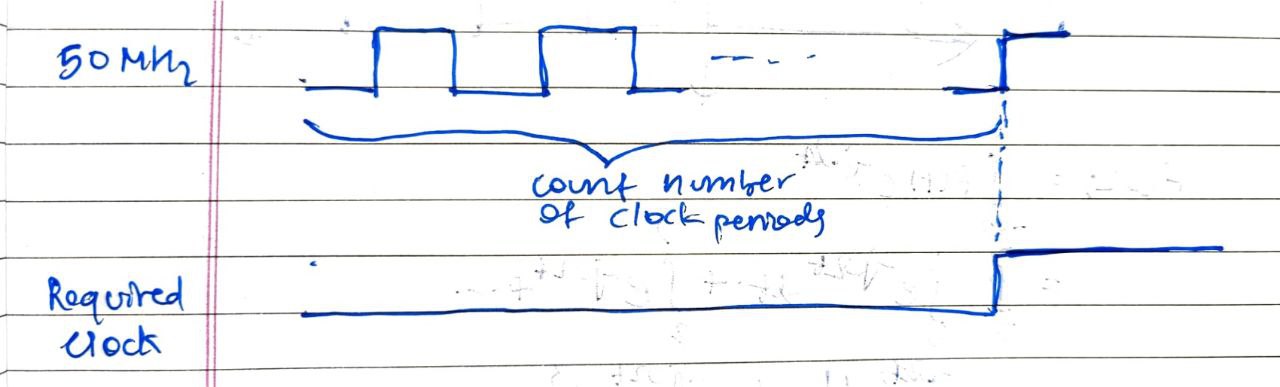 50 MHz
count number
of clock periods
Required
clock